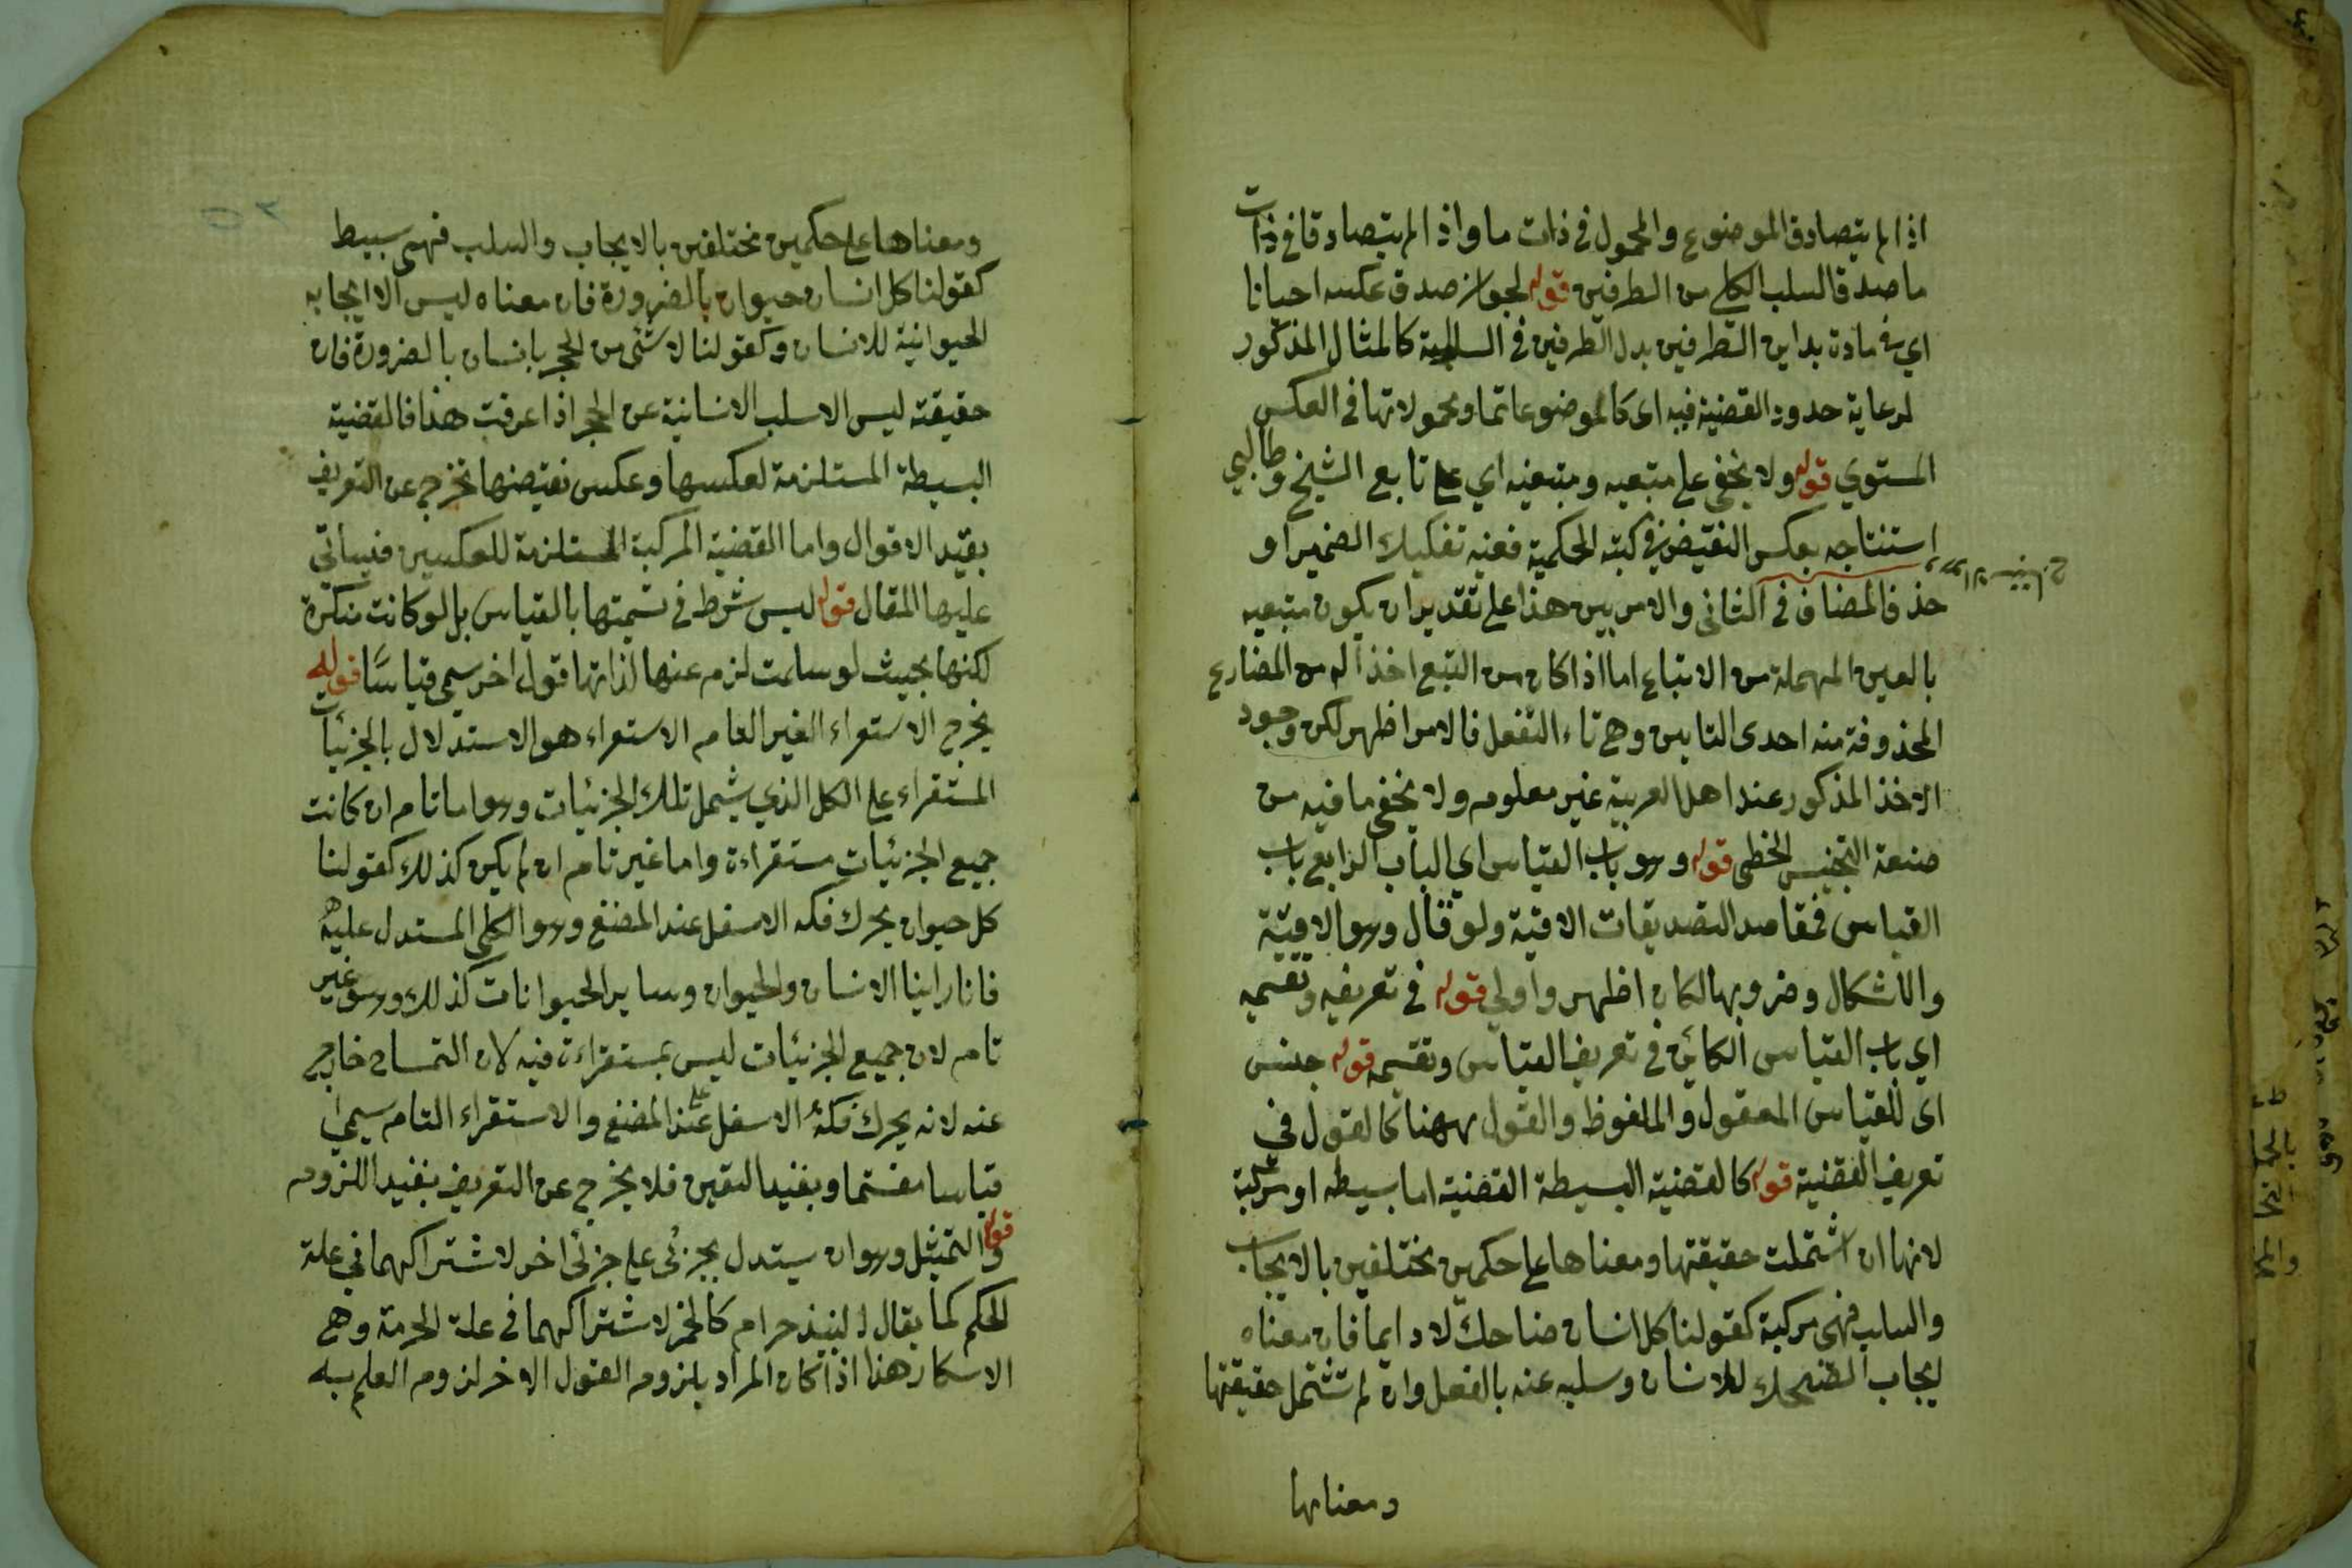 اذا لم يتصادق الموضوع والمحمول في ذات ما واذا لم يتصادقا في ذات
ما صدق السلب الكلي من الطرفين قوله لجواز صدق عكسه احيانا
اي في مادة بداين الطرفين بدل الطرفين في السالبة كالمثال المذكور
لرعاية حدود القضية فيه اى كالموضوعاتما ومحمولاتها في العكس
المستوي قوله ولا يخفى على متبعيه ومتبعيه اي على تابع الشيخ وطالبي
استنتاجه بعكس النقيض في كتبه الحكمية ففيه تفكيك الضمير او
حذف المضاف في الثاني والامر بين هذا على تقدير ان يكون متبعيه
بالعين المهملة من الاتباع اما اذا كان من التبع اخذا له من المضارع
المحذوفة منه احدى التايين وهي تاء التفعل فالامر اظهر لكن وجود
الاخذ المذكور عند اهل العربية غير معلوم ولا يخفى ما فيه من
صنعة التجنيس الخطى قوله وهو باب القياس اي الباب الرابع باب
القياس فمقاصد التصديقات الاقية ولو قال وهو الاقية
والاشكال وضروبها لكان اظهر واولي قوله في تعريفه وتقسيمه
اي باب القياس الكائن في تعريف القياس وتقسيمه قوله جنس
اى للقياس المعقول والملفوظ والقول ههنا كالقول في
تعريف القضية قوله كالقضية البسيطة القضية اما بسيطه او مركبة
لانها ان اشتملت حقيقتها ومعناها على حكمين مختلفين بالايجاب
والسلب فهى مركبة كقولنا كل انسان ضاحك لا دايما فان معناه
ايجاب الضحك للانسان وسلبه عنه بالفعل وان لم تشتمل حقيقتها
ومعناها
ومعناها على حكمين مختلفين بالايجاب والسلب فهى بسيط
كقولنا كل انسان حيوان بالضرورة فان معناه ليس الا ايجابه
الحيوانية للانسان وكقولنا لا شئ من الحجر بانسان بالضرورة فان
حقيقته ليس الا سلب الانسانية عن الحجر اذا عرفت هذا فالقضية
البسيطة المستلزمة لعكسها وعكس نقيضها تخرج عن التعريف
بقيد الاقوال واما القضية المركبة المستلزمة للعكسين فسياتي
عليها المقال قوله ليس شرط في تسميتها بالقياس بل لو كانت منكرة
لكنها بحيث لو سلمت لزم عنها لذاتها قول اخر سمي قياسًا قوله
يخرج الاستقراء الغير التام الاستقراء هو الاستدلال بالجزئيات
المستقراء على الكل الذي يشمل تلك الجزئيات وهو اما تام ان كانت
جميع الجزئيات مستقراءة واما غير تام ان لم يكن كذلك كقولنا
كل حيوان يحرك فكه الاسفل عند المضغ وهو الكلى المستدل عليه
فانا راينا الانسان والحيوان وساير الحيوانات كذلك وهو غير
تام لان جميع الجزئيات ليس بمستقراءة فيه لان التمساح خارج
عنه لانه يحرك فكه الاسفل عند المضغ والاستقراء التام سيمي
قياسا مقسما ويفيد اليقين فلا يخرج عن التعريف بقيد اللزوم
قوله والتمثيل وهو ان يستدل بجزئى على جزئى اخر لاشتراكهما في علة
الحكم كما يقال النبيذ حرام كالخمر لاشتراكهما في علة الحرمة وهي
الاسكار هذا اذا كان المراد بلزوم القول الاخر لزوم العلم به